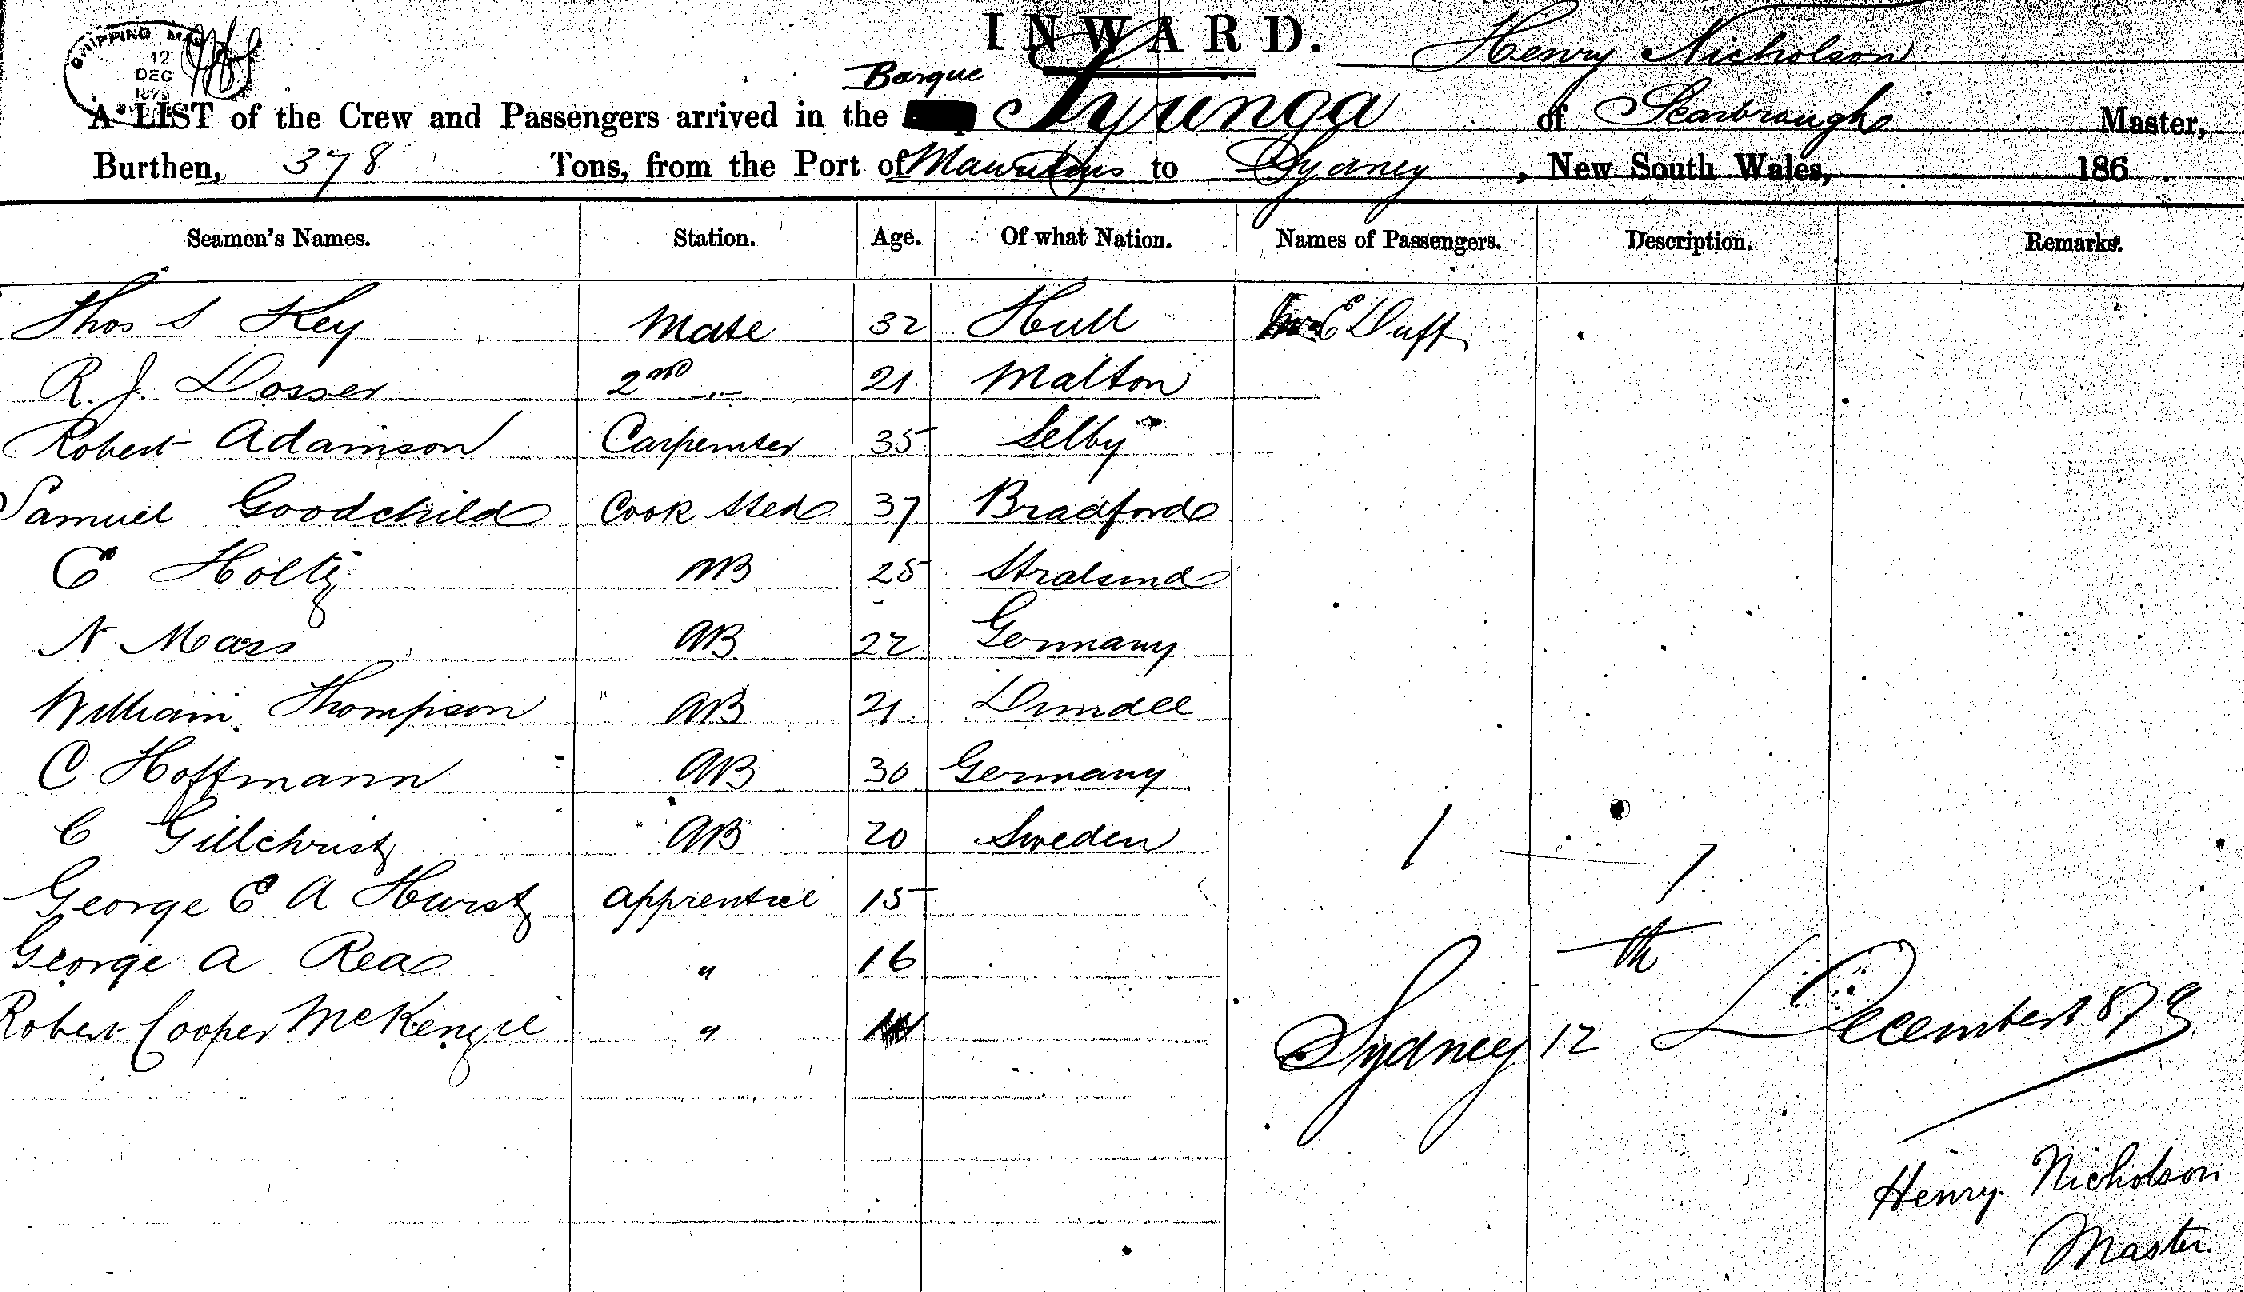 SHIPPING MA
12
DEC
1879
INWARD.
Henry Nicholson
Barque
A LIST of the Crew and Passengers arrived in the Iyunga of Scarbrough Master,
Burthen, 378 Tons, from the Port of Mauritius to Sydney, New South Wales, 186
Seamen's Names. Station. Age. Of what Nation. Names of Passengers. Description. Remarks.
Thos S Key Mate 32 Hull E Duff
R. J. Dosser 2nd " 21 Malton
Robert Adamson Carpenter 35 Selby
Samuel Goodchild Cook Sted 37 Bradford
C Holtz AB 25 Stralsund
N Mass AB 22 Germany
William Thompson AB 21 Dundee
C Hoffmann AB 30 Germany
C Gillchrist AB 20 Sweden
George E A Hurst apprentice 15
George A Rea " 16
Robert Cooper McKenzie "
Sydney 12th December 1879
Henry Nicholson
Master